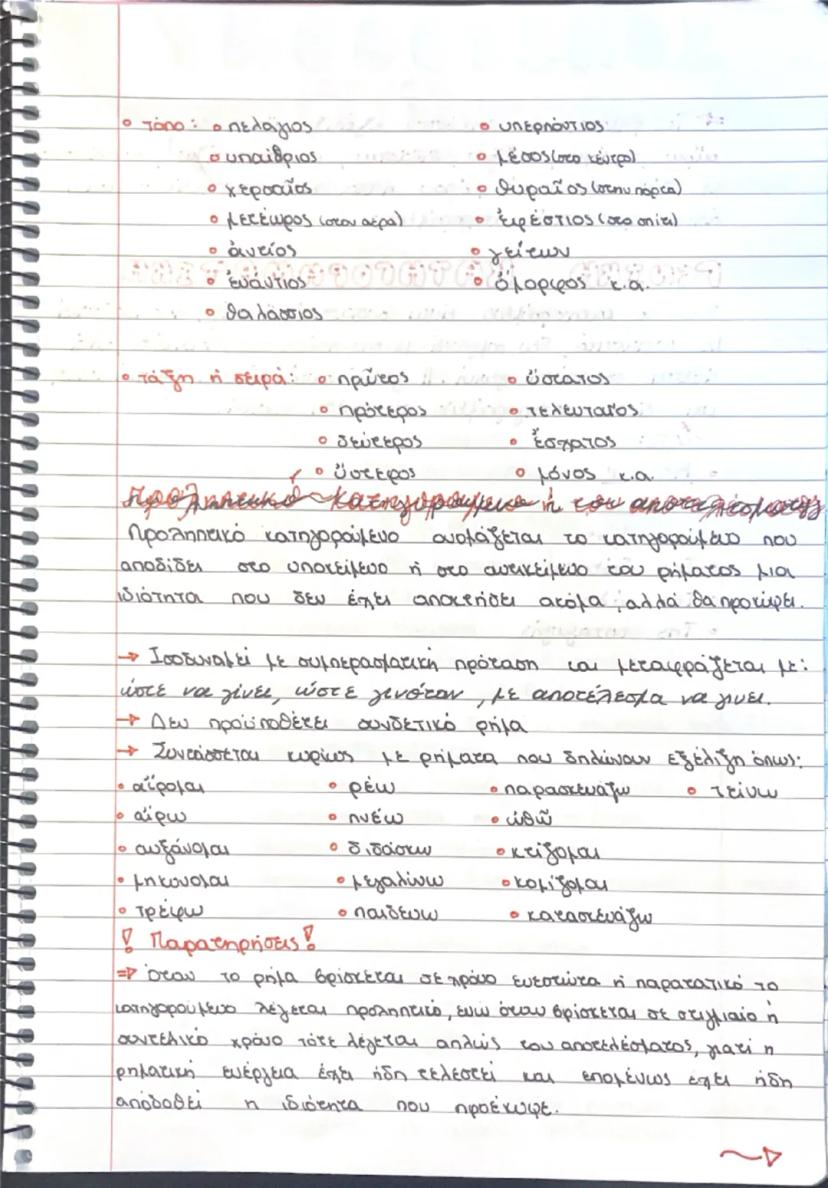 • τόπο: • πελάγιος • υπερπόντιος
• υπαίθριος • μέσος (στο κέντρο)
• χερσαῖος • θυραῖος (στην πόρτα)
• μετέωρος (στον αέρα) • ἐφέστιος (στο σπίτι)
• ἀντίος • γείτων
• ἐνάντιος • ὅμορφος κ.α.
• θαλάσσιος
• τάξη ή σειρά: • πρῶτος • ὕστατος
• πρότερος • τελευταῖος
• δεύτερος • ἔσχατος
• ὕστερος • μόνος κ.α.
Προληπτικό κατηγορούμενο ή του αποτελέσματος
Προληπτικό κατηγορούμενο ονομάζεται το κατηγορούμενο που
αποδίδει στο υποκείμενο ή στο αντικείμενο του ρήματος μια
ιδιότητα που δεν έχει αποκτήσει ακόμα, αλλά θα προκύψει.
→ Ισοδυναμεί με συμπερασματική πρόταση και μεταφράζεται με:
ώστε να γίνει, ώστε γινόταν, με αποτέλεσμα να γινει.
→ Δεν προϋποθέτει συνδετικό ρήμα
→ Συντάσσεται κυρίως με ρήματα που δηλώνουν εξέλιξη όπως:
• αἴρομαι • ρέω • παρασκευάζω • τείνω
• αἴρω • πνέω • ὠθῶ
• αυξάνομαι • διδάσκω • κτίζομαι
• μηκυνομαι • μεγαλύνω • κομίζομαι
• τρέφω • παιδευω • κατασκευάζω
! Παρατηρήσεις!
⇒ Όταν το ρήμα βρίσκεται σε χρόνο ενεστώτα ή παρατατικό το
κατηγορούμενο λέγεται προληπτικό, ενώ όταν βρίσκεται σε στιγμιαίο ή
συντελικό χρόνο τότε λέγεται απλώς του αποτελέσματος, γιατί η
ρηματική ενέργεια έχει ήδη τελεστεί και επομένως έχει ήδη
αποδοθεί η ιδιότητα που προέκυψε.